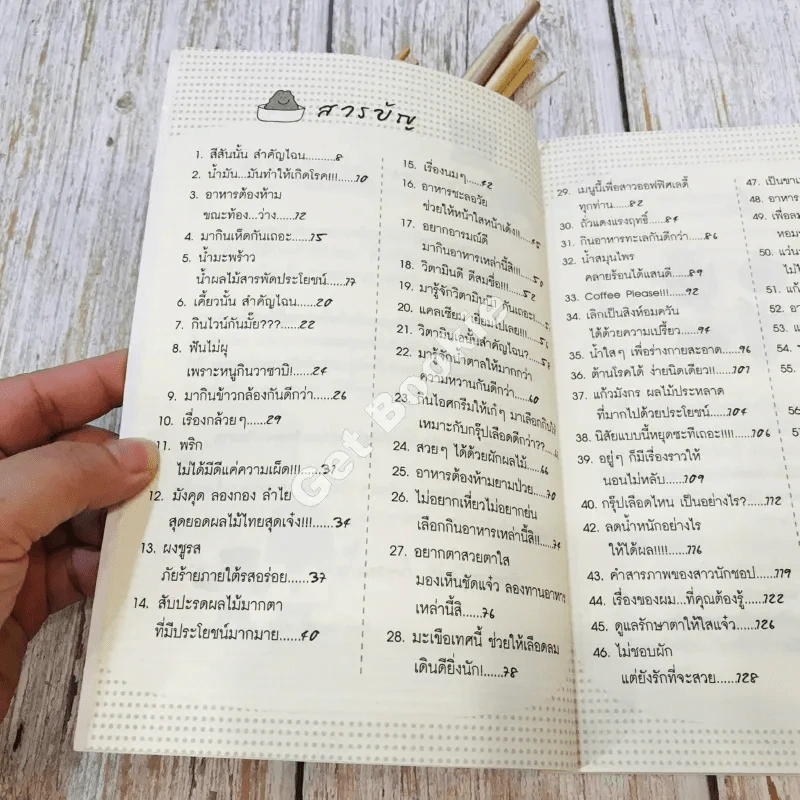 สารบัญ
1. สีสันนั้น สำคัญไฉน..........8
2. น้ำมัน...มันทำให้เกิดโรค!!!......10
3. อาหารต้องห้าม
ขณะท้อง...ว่าง......12
4. มากินเห็ดกันเถอะ......15
5. น้ำมะพร้าว
น้ำผลไม้สารพัดประโยชน์......17
6. เคี้ยวนั้น สำคัญไฉน......20
7. กินไวน์กันมั๊ย???......22
8. ฟันไม่ผุ
เพราะหนูกินวาซาบิ!......24
9. มากินข้าวกล้องกันดีกว่า......26
10. เรื่องกล้วยๆ......29
11. พริก
ไม่ได้มีดีแค่ความเผ็ด!!!......31
12. มังคุด ลองกอง ลำไย
สุดยอดผลไม้ไทยสุดเจ๋ง!!!......34
13. ผงชูรส
ภัยร้ายภายใต้รสอร่อย......37
14. สับปะรดผลไม้มากตา
ที่มีประโยชน์มากมาย......40
15. เรื่องนมๆ......42
16. อาหารชะลอวัย
ช่วยให้หน้าใสหน้าเด้ง!!......45
17. อยากอารมณ์ดี
มากินอาหารเหล่านี้สิ!!......50
18. วิตามินดี ดีสมชื่อ!!!......52
19. มารู้จักวิตามิน กันเถอะ!
20. แคลเซียม เยี่ยมไปเลย!!!......56
21. วิตามินเอนั้นสำคัญไฉน?......57
22. มารู้จักน้ำตาลให้มากกว่า
ความหวานกันดีกว่า......60
23. กินไอศกรีมให้เก๋ๆ มาเลือกกินให้
เหมาะกับกรุ๊ปเลือดดีกว่า??
24. สวยๆ ได้ด้วยผักผลไม้......66
25. อาหารต้องห้ามยามป่วย......70
26. ไม่อยากเหี่ยวไม่อยากย่น
เลือกกินอาหารเหล่านี้สิ!!......74
27. อยากตาสวยตาใส
มองเห็นชัดแจ๋ว ลองทานอาหาร
เหล่านี้สิ......76
28. มะเขือเทศนี้ ช่วยให้เลือดลม
เดินดียิ่งนัก!......78
29. เมนูนี้เพื่อสาวออฟฟิศเลดี้
ทุกท่าน......82
30. ถั่วแดงแรงฤทธิ์......84
31. กินอาหารทะเลกันดีกว่า......86
32. น้ำสมุนไพร
คลายร้อนได้แสนดี......89
33. Coffee Please!!!......92
34. เลิกเป็นสิงห์อมควัน
ได้ด้วยความเปรี้ยว......94
35. น้ำใสๆ เพื่อร่างกายสะอาด......96
36. ต้านโรคได้ ง่ายนิดเดียว!!......101
37. แก้วมังกร ผลไม้ประหลาด
ที่มากไปด้วยประโยชน์......104
38. นิสัยแบบนี้หยุดซะทีเถอะ!!!!......106
39. อยู่ๆ ก็มีเรื่องราวให้
นอนไม่หลับ......109
40. กรุ๊ปเลือดไหน เป็นอย่างไร?......112
42. ลดน้ำหนักอย่างไร
ให้ได้ผล!!!!......116
43. คำสารภาพของสาวนักชอป......119
44. เรื่องของผม...ที่คุณต้องรู้......122
45. ดูแลรักษาตาให้ใสแจ๋ว......126
46. ไม่ชอบผัก
แต่ยังรักที่จะสวย......128
47. เป็น
48. อาหาร
49.
50.
51.
52.
53.
54.
55.
56.
Get Bookie